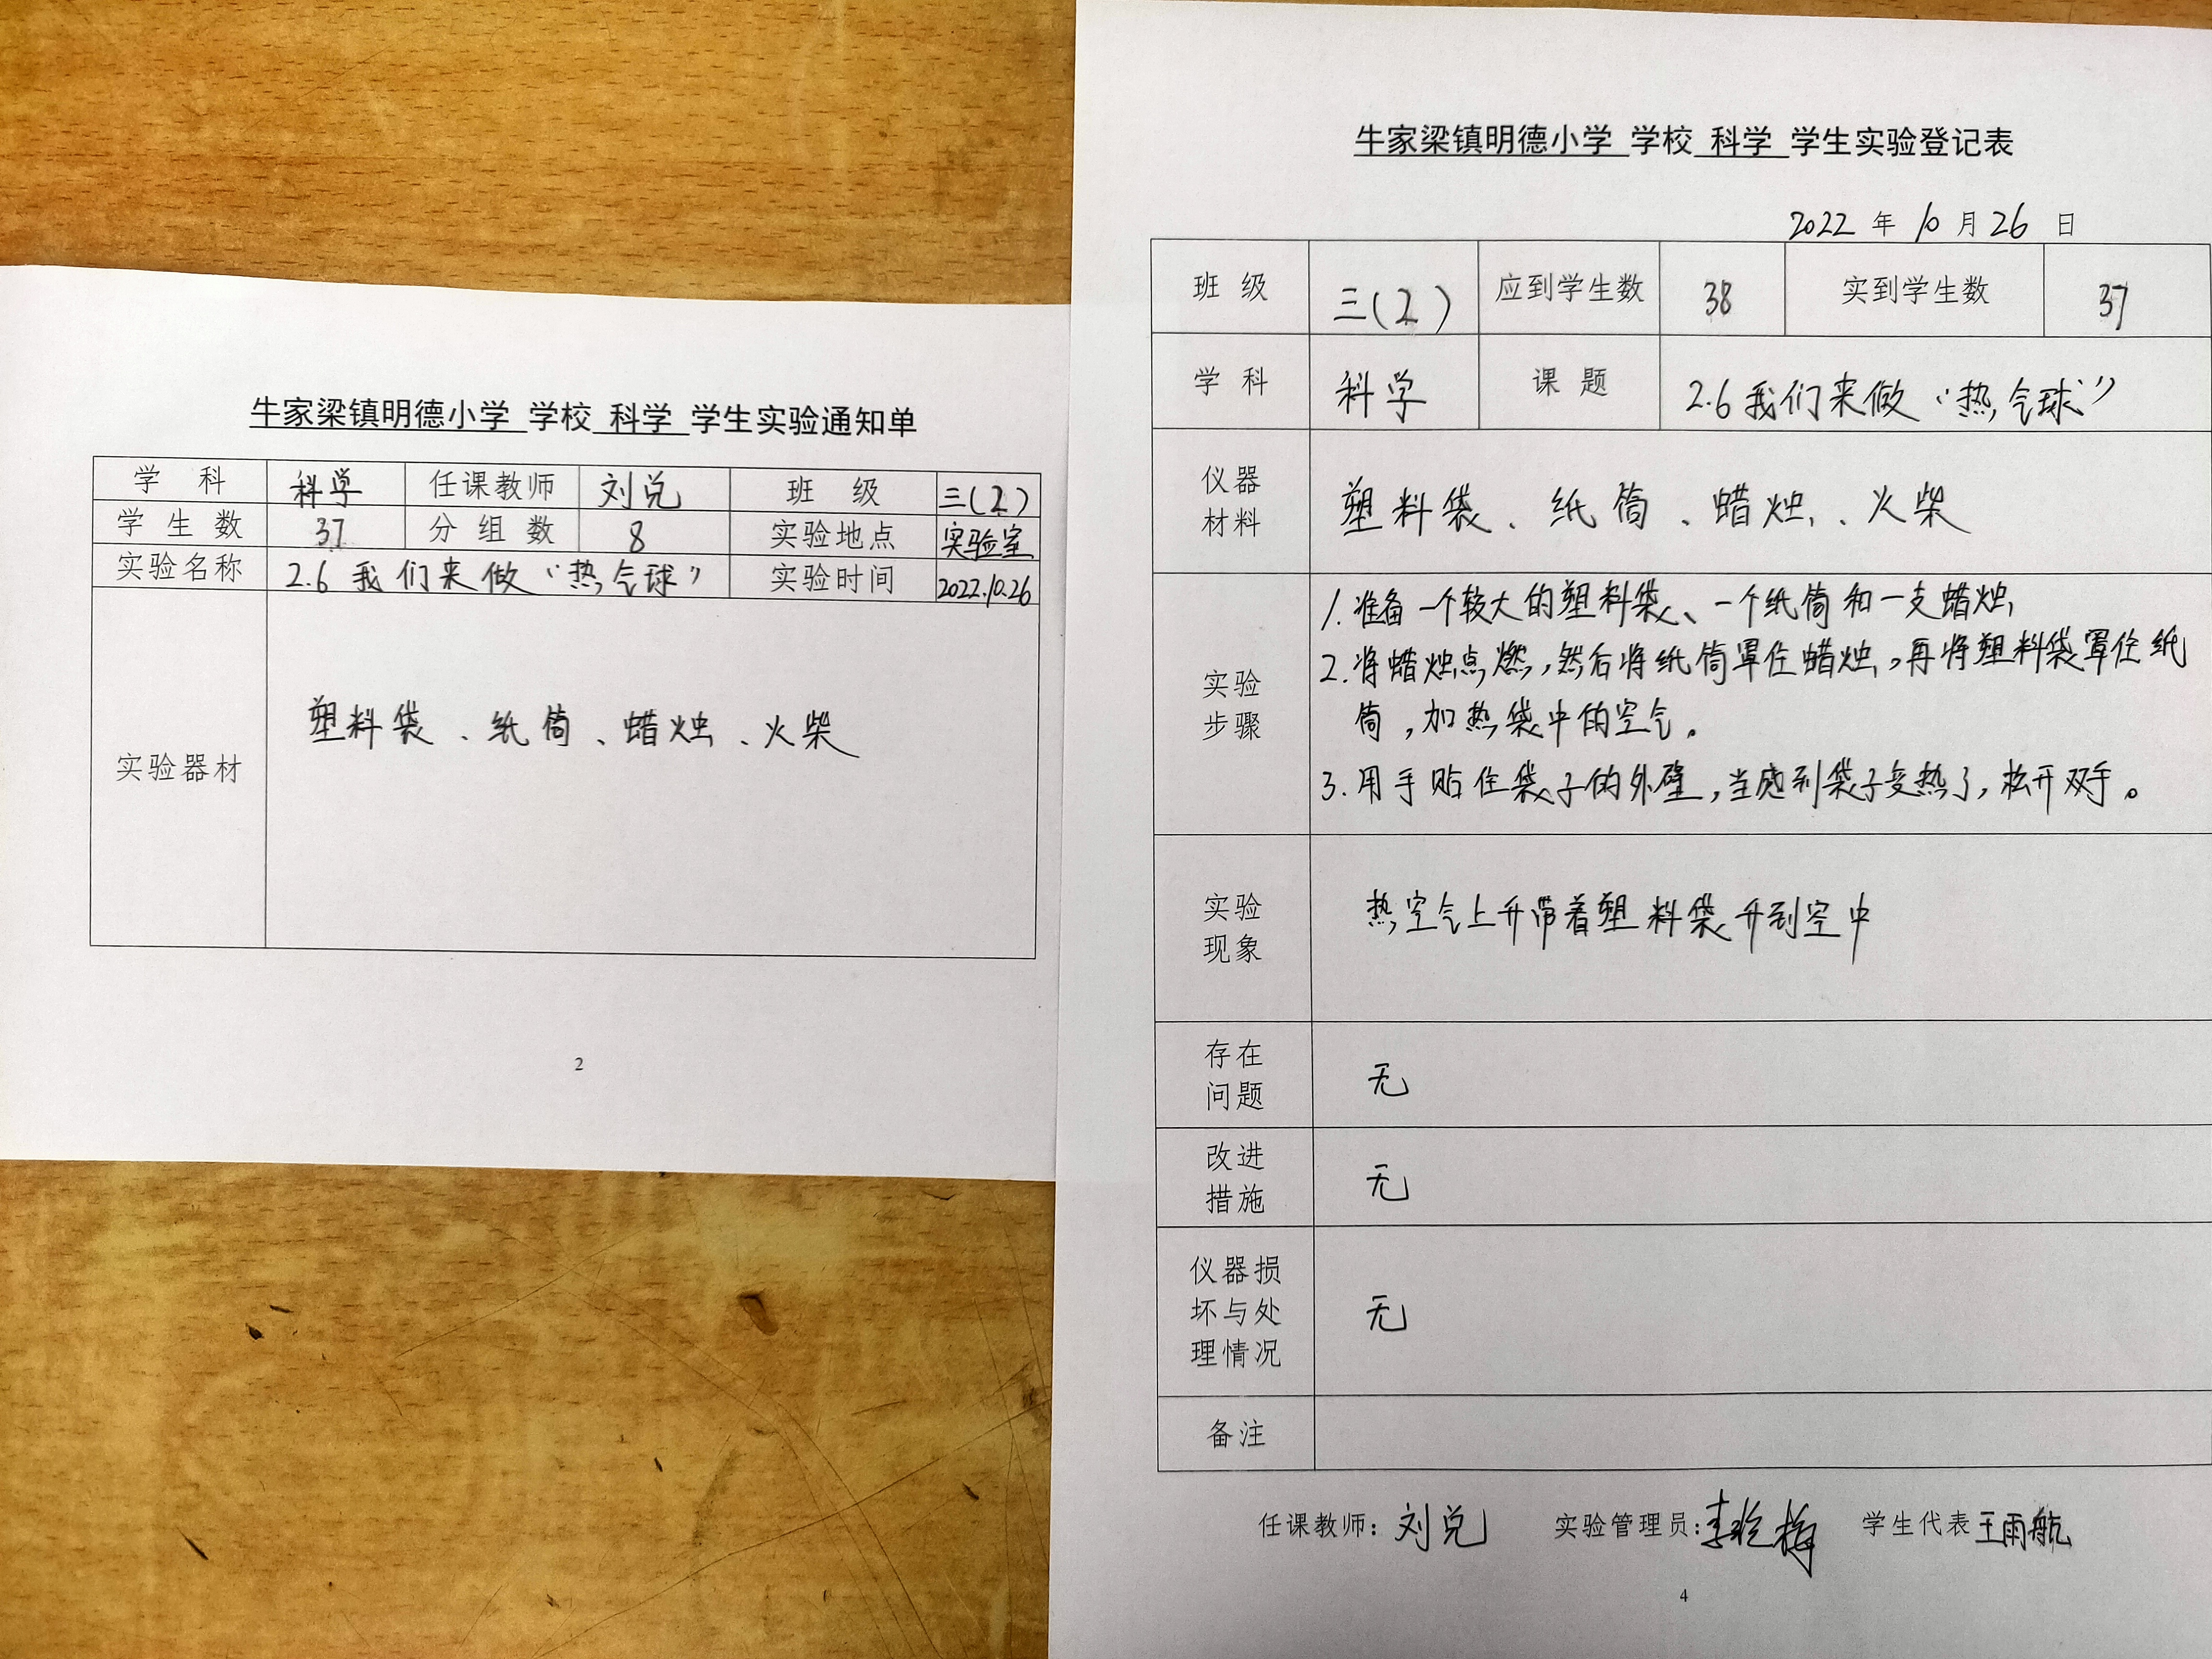 牛家梁镇明德小学 学校 科学 学生实验通知单
学 科 科学 任课教师 刘兑 班 级 三(2)
学 生 数 37 分 组 数 8 实验地点 实验室
实验名称 2.6 我们来做“热气球” 实验时间 2022.10.26
实验器材 塑料袋、纸筒、蜡烛、火柴
2
牛家梁镇明德小学 学校 科学 学生实验登记表
2022 年 10 月 26 日
班 级 三(2) 应到学生数 38 实到学生数 37
学 科 科学 课 题 2.6 我们来做“热气球”
仪器
材料
塑料袋、纸筒、蜡烛、火柴
实验
步骤
1.准备一个较大的塑料袋、一个纸筒和一支蜡烛
2.将蜡烛点燃,然后将纸筒罩住蜡烛,再将塑料袋罩住纸
筒,加热袋中的空气。
3.用手贴住袋子的外壁,当感到袋子变热了,松开双手。
实验
现象
热空气上升带着塑料袋升到空中
存在
问题
无
改进
措施
无
仪器损
坏与处
理情况
无
备注
任课教师: 刘兑 实验管理员: 学生代表 王雨航
4